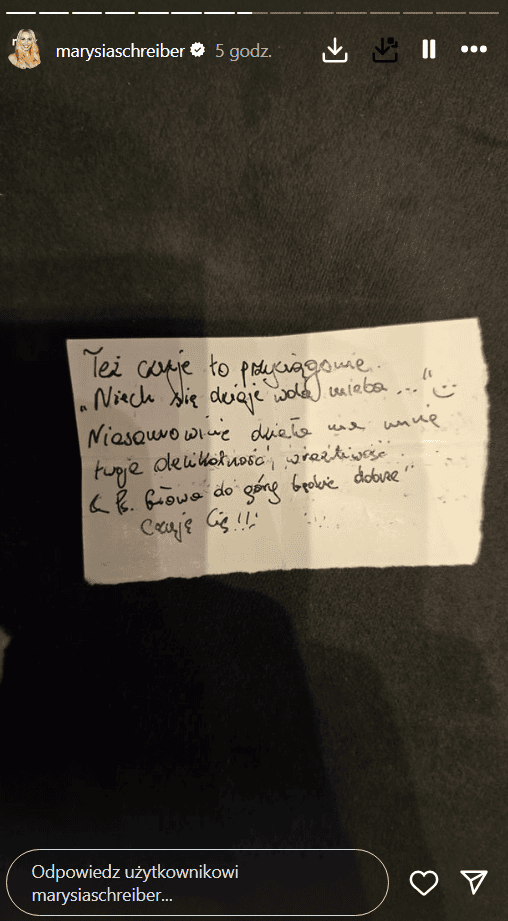 marysiaschreiber 5 godz.
Też czuje to przyciąganie.
„Niech się dzieje wola nieba..." :)
Niesamowicie działa na mnie
twoja delikatność, wrażliwość
Ps. Głowa do góry będzie dobrze"
Czuję Cię!!!
Odpowiedz użytkownikowi
marysiaschreiber...